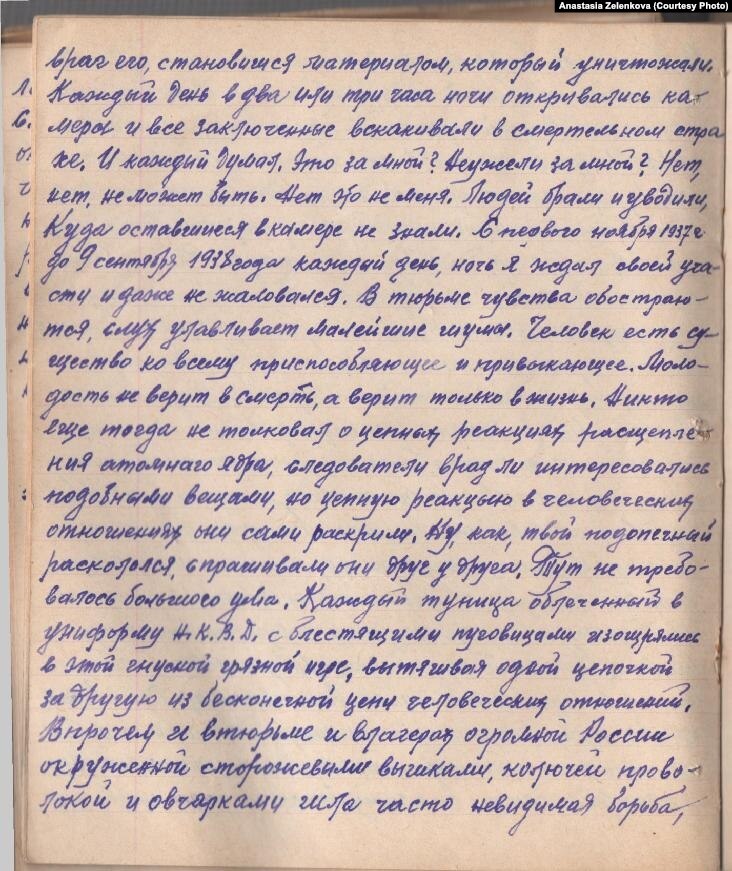 Anastasia Zelenkova (Courtesy Photo)
враг его, становишся материалом, который уничтожали.
Каждый день в два или три часа ночи открывались ка-
меры и все заключенные вскакивали в смертельном стра
хе. И каждый думал. Это за мной? Неужели за мной? Нет,
нет, не может быть. Нет это не меня. Людей брали и уводили,
Куда оставшиеся в камере не знали. С первого ноября 1937 г
до 9 сентября 1938 года каждый день, ночь я ждал своей уча-
сти и даже не жаловался. В тюрьме чувства обостряю-
тся, слух улавливает малейшие шумы. Человек есть су-
щество ко всему приспособляющее и привыкающее. Моло-
дость не верит в смерть, а верит только в жизнь. Никто
еще тогда не толковал о цепных реакциях расщепле-
ния атомнаго ядра, следователи врядли интересовались
подобными вещами, но цепную реакцыю в человеческих
отношениях они сами раскрили. Ну, как, твой подопечный
раскололся, спрашивали они друг у друга. Тут не требо-
валось большого ума. Каждый тупица облеченный в
униформу Н.К.В.Д. с блестящими пуговицами изощрялись
в этой гнусной грязной игре, вытягивая одной цепочкой
за другую из бесконечной цепи человеческих отношений.
Впрочем и в тюрьме и в лагерях огромной России
окруженной сторожевыми вышками, колючей прово-
локой и овчарками шла часто невидимая борьба,